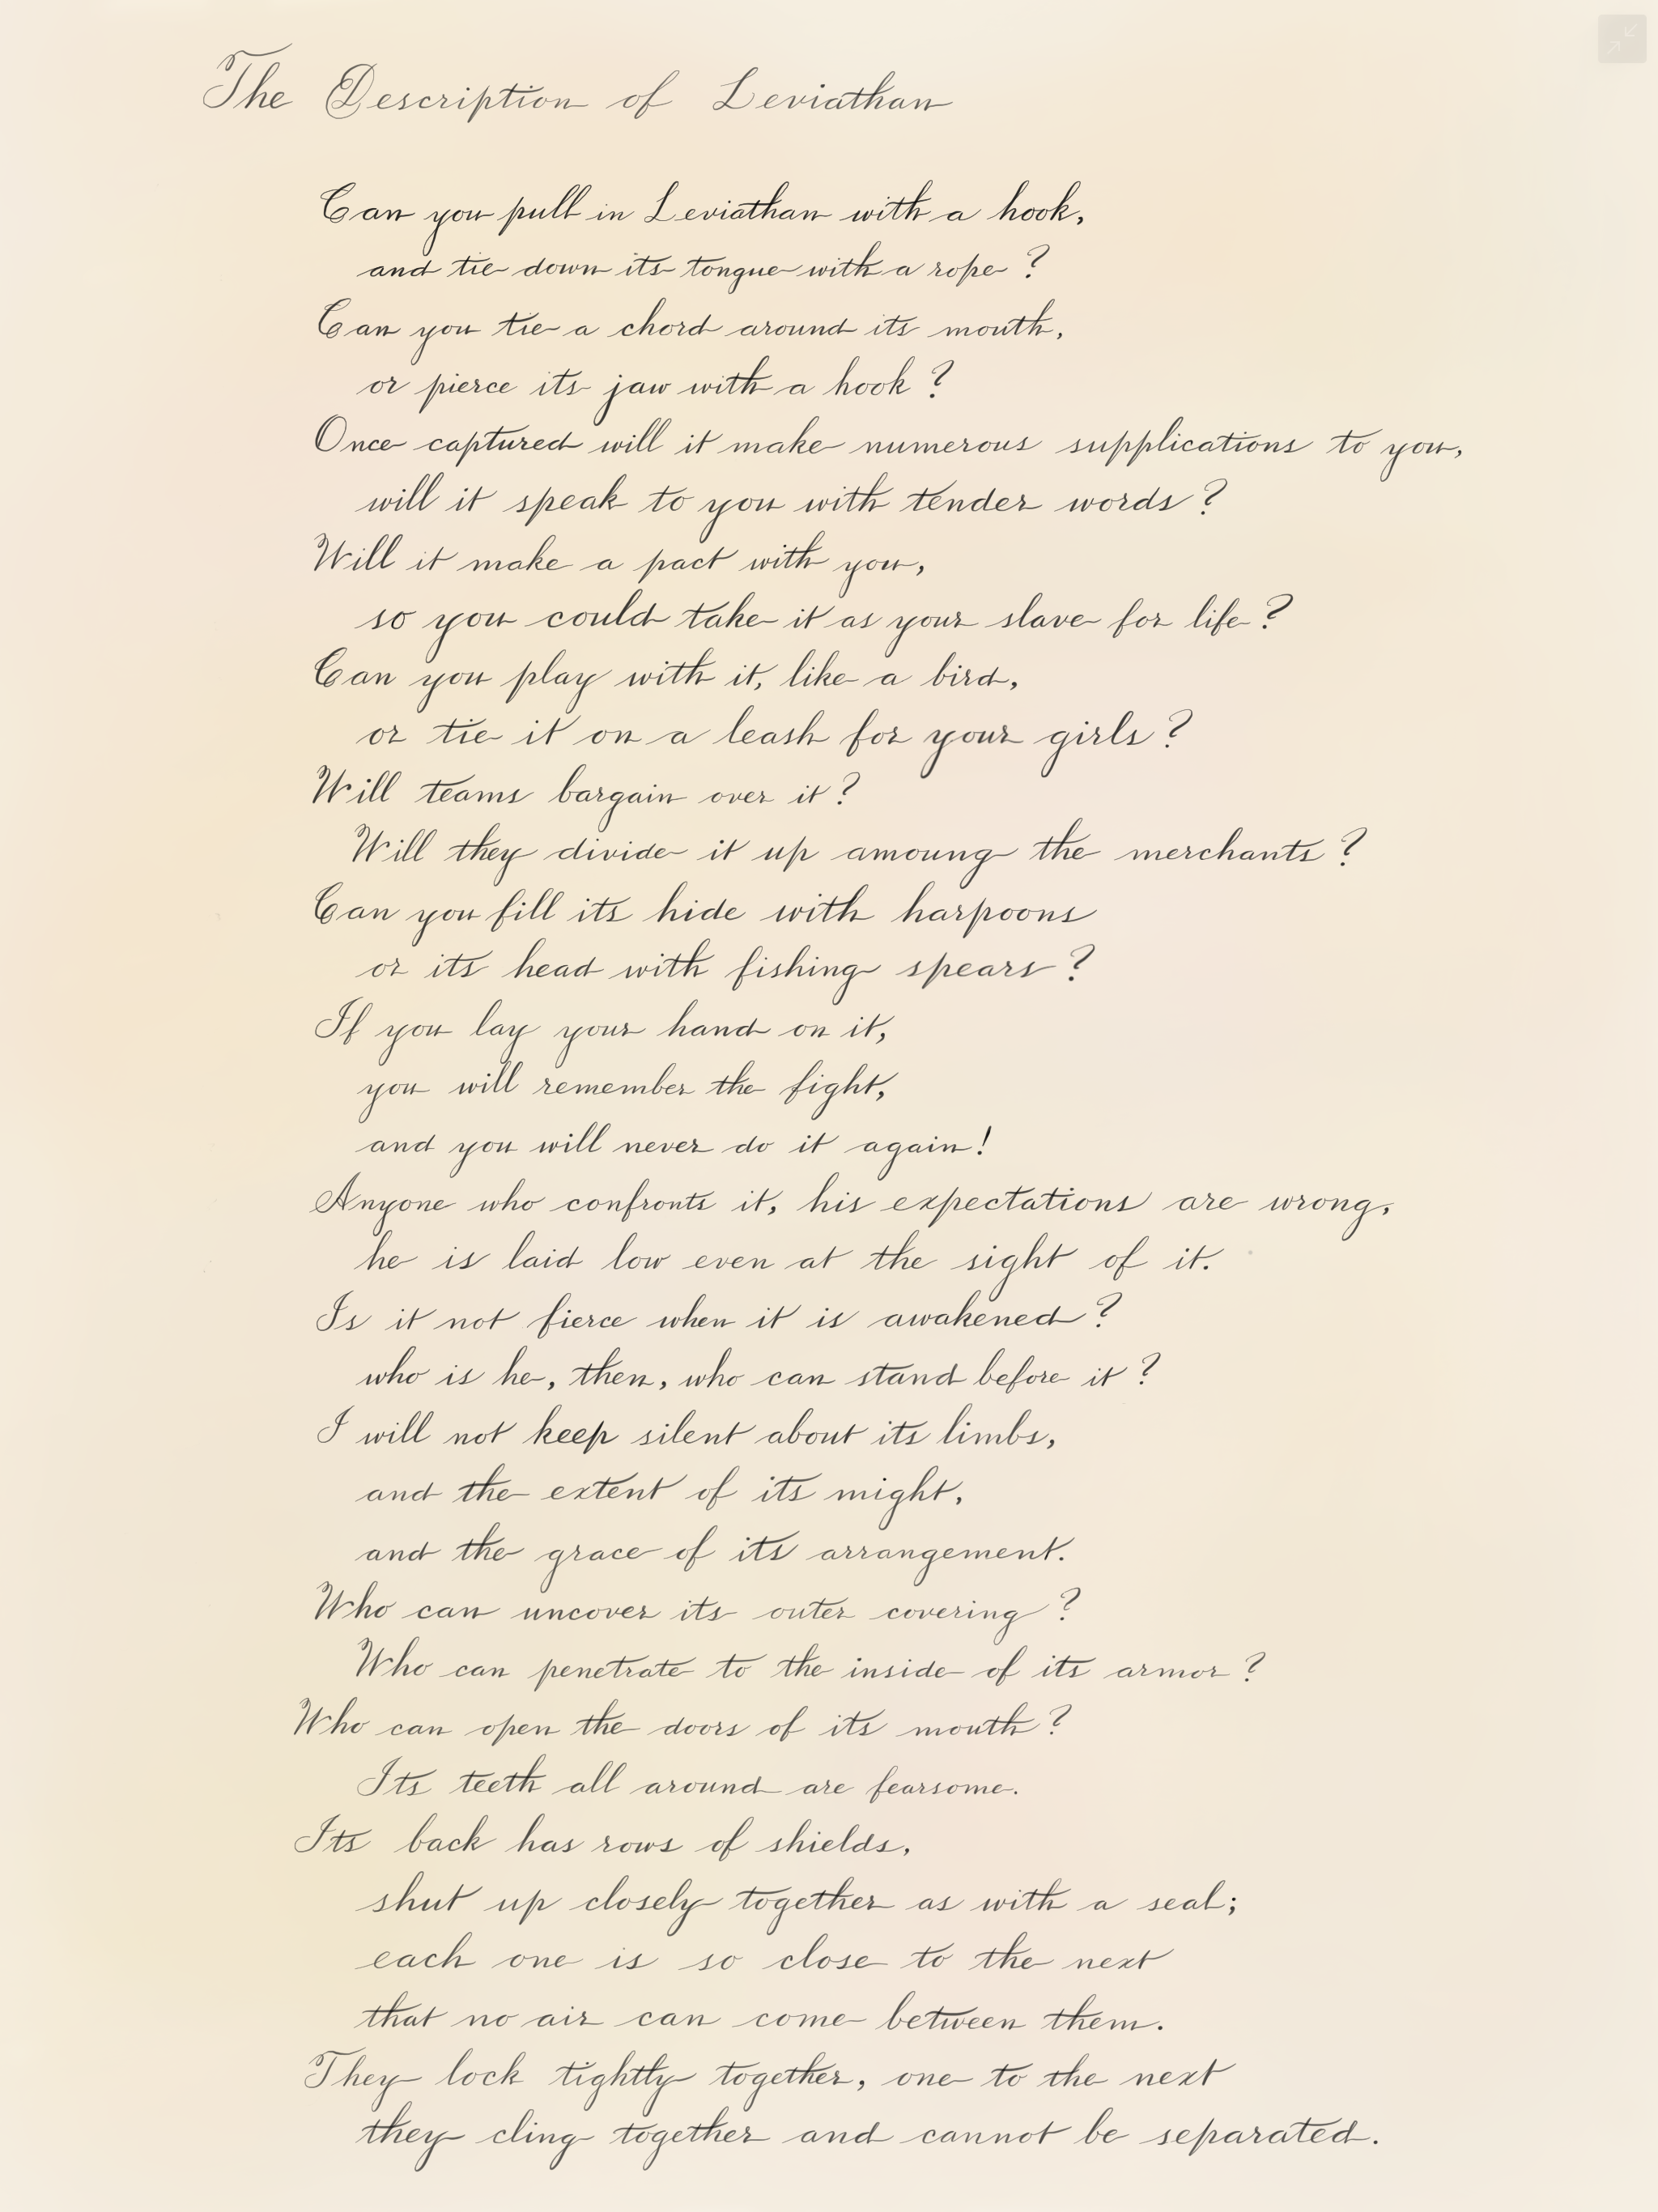 The Description of Leviathan
Can you pull in Leviathan with a hook,
and tie down its tongue with a rope?
Can you tie a chord around its mouth,
or pierce its jaw with a hook?
Once captured will it make numerous supplications to you,
will it speak to you with tender words?
Will it make a pact with you,
so you could take it as your slave for life?
Can you play with it, like a bird,
or tie it on a leash for your girls?
Will teams bargain over it?
Will they divide it up amoung the merchants?
Can you fill its hide with harpoons
or its head with fishing spears?
If you lay your hand on it,
you will remember the fight,
and you will never do it again!
Anyone who confronts it, his expectations are wrong,
he is laid low even at the sight of it.
Is it not fierce when it is awakened?
who is he, then, who can stand before it?
I will not keep silent about its limbs,
and the extent of its might,
and the grace of its arrangement.
Who can uncover its outer covering?
Who can penetrate to the inside of its armor?
Who can open the doors of its mouth?
Its teeth all around are fearsome.
Its back has rows of shields,
shut up closely together as with a seal;
each one is so close to the next
that no air can come between them.
They lock tightly together, one to the next
they cling together and cannot be separated.